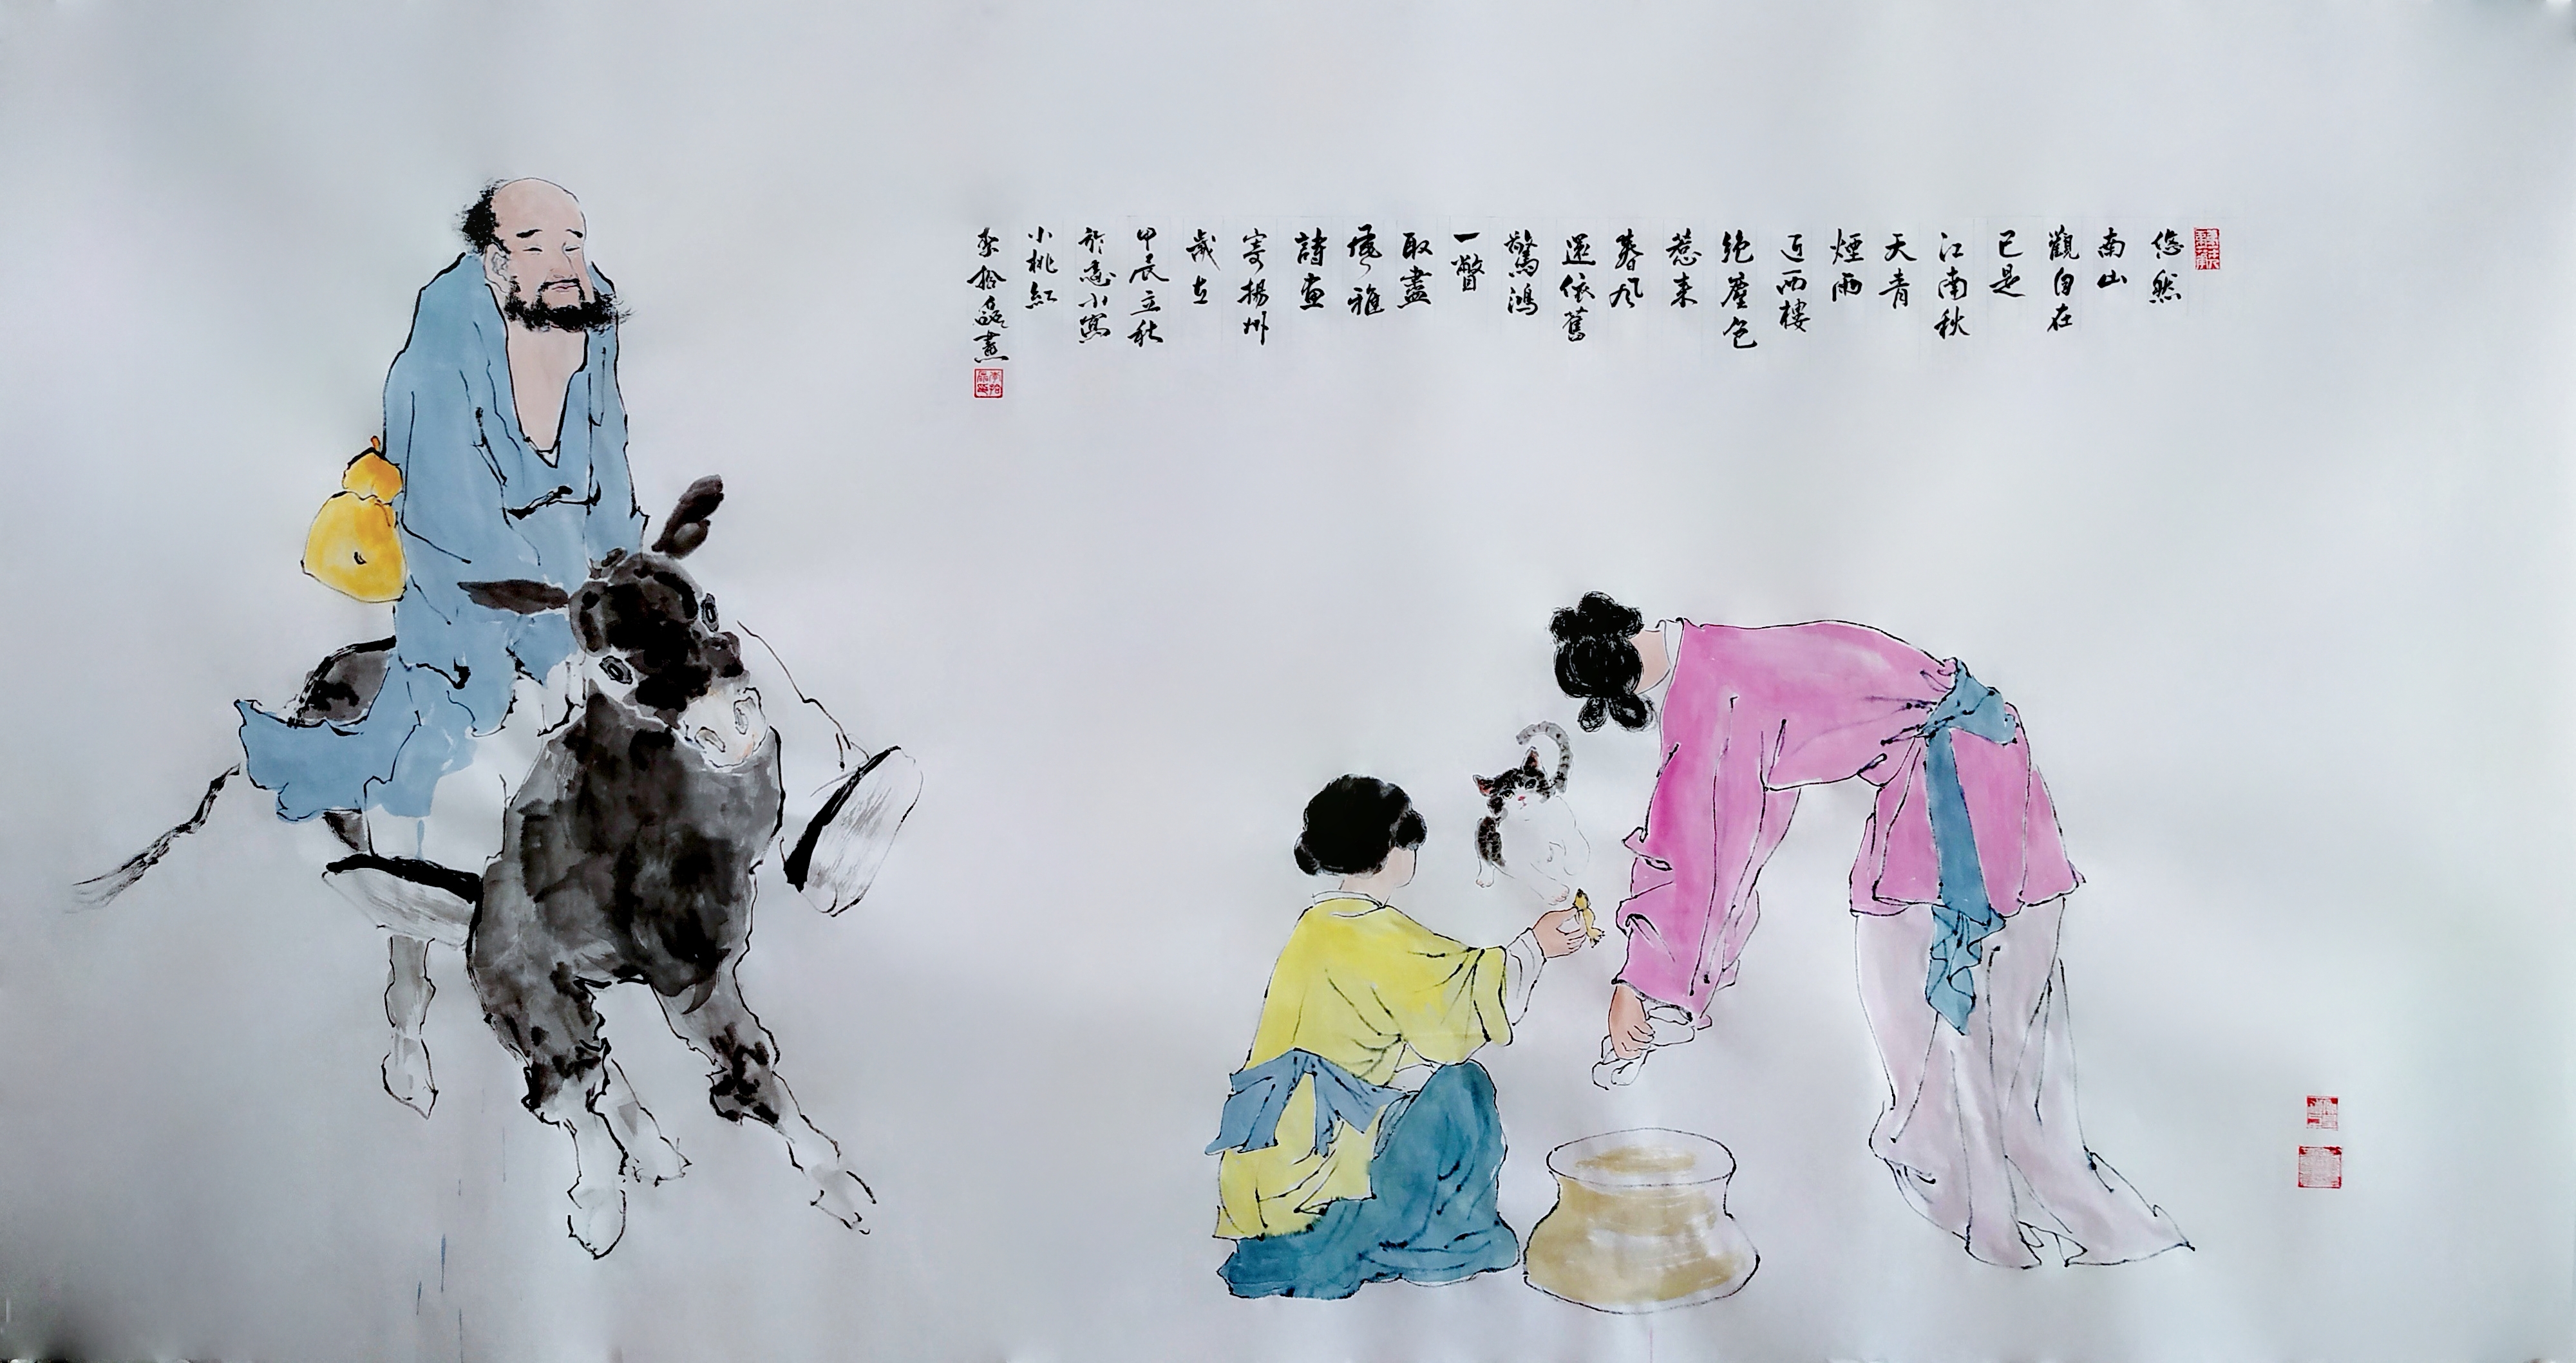 悠然
南山
觀自在
已是
江南秋
天青
煙雨
近西樓
絶塵色
惹来
春风
還依舊
驚鴻
一瞥
取盡
風雅
詩畫
寄揚州
歲在
甲辰立秋
於
小寫
小桃紅
李拾磊畫